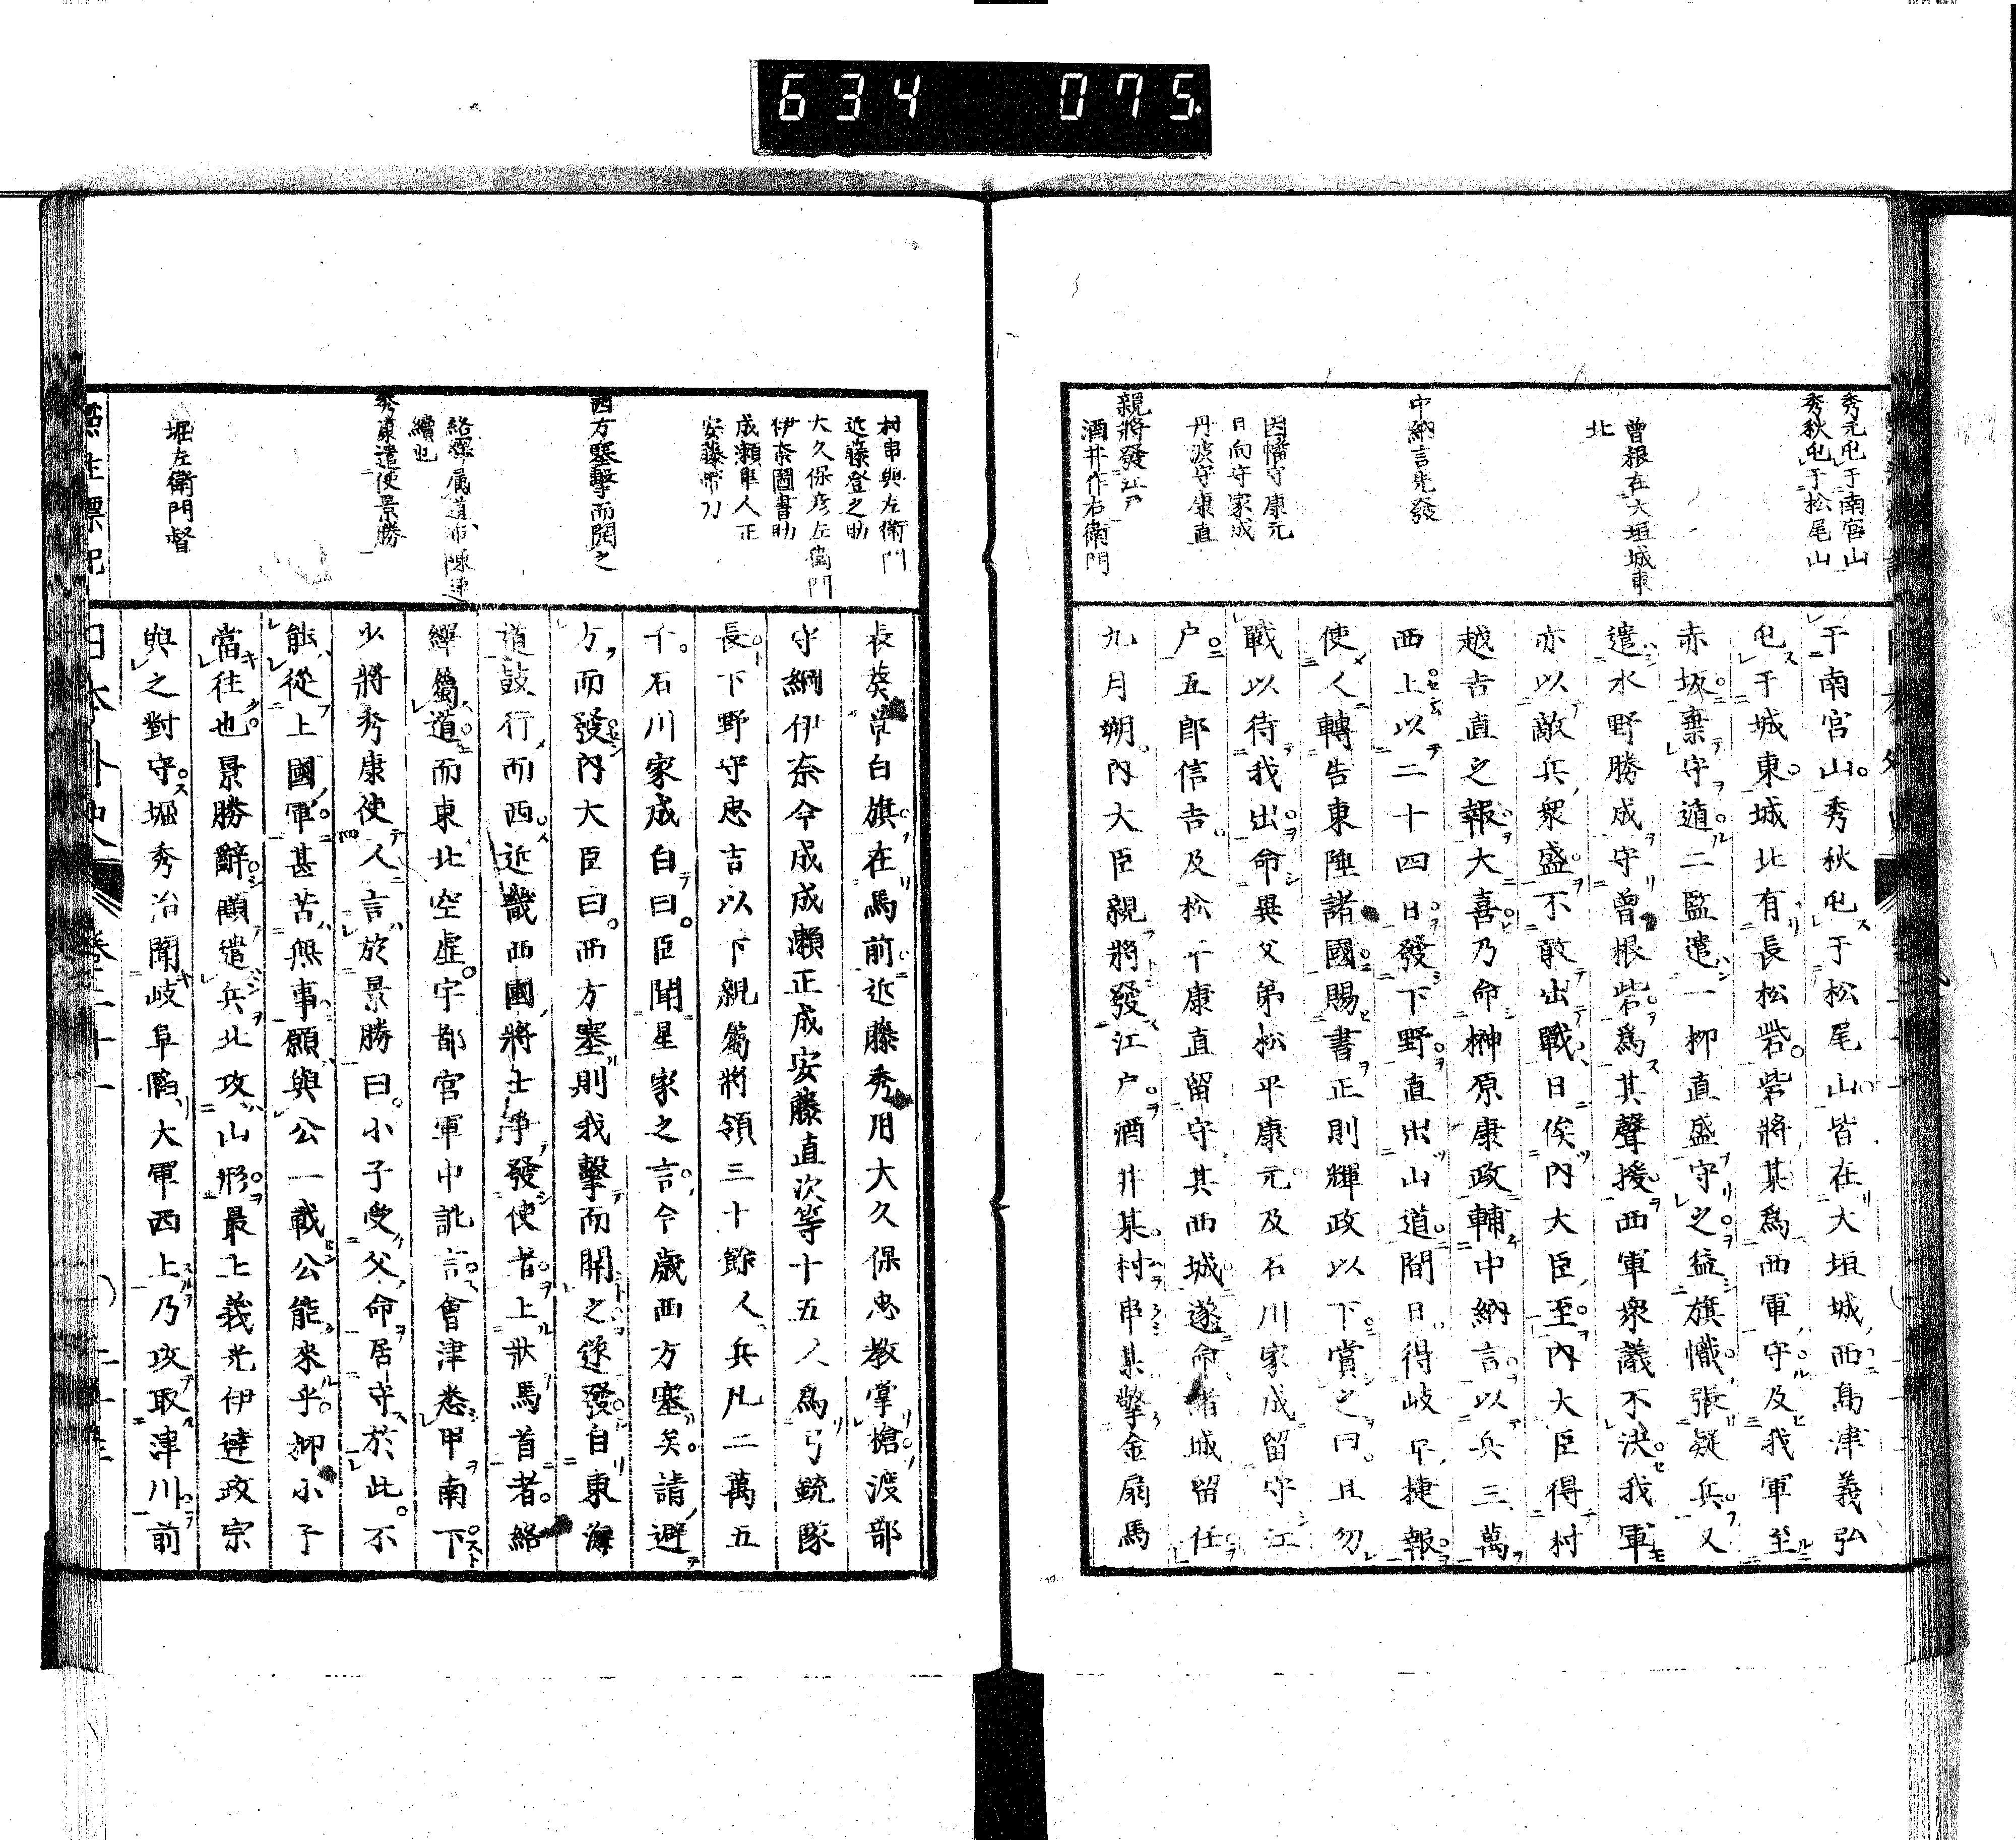 634 075
秀元屯于南宮山
秀秋屯于松尾山
曽根在大垣城東
北
中納言先發
因幡守康元
日向守家成
丹波守康直
親將發江戸
酒井作右衛門
于南宮山。秀秋屯于松尾山皆在大垣城西島津義弘
屯于城東。城北有長松砦。砦將某為西軍守及我軍至
赤坂棄守遁二監遣一柳直盛守之益旗幟張疑兵又
遣水野勝成守曽根砦為其聲援西軍衆議不决我軍
亦以敵兵衆盛不敢出戰日俟内大臣至内大臣得村
越吉直之報大喜乃命榊原康政輔中納言以兵三萬
西上以二十四日發下野直出山道間日得岐阜捷報
使人轉告東陲諸國賜書正則輝政以下賞之曰。且勿
戰以待我出命異父弟松平康元及石川家成留守江
户五郎信吉。及松平康直留守其西城遂命諸城留任
九月朔。内大臣親將發江户。酒井某。村串某擎金扇馬
村串與左衛門
近藤登之助
大久保彦左衛門
伊奈圖書助
成瀬隼人正
安藤帶刀
西方塞擊而開之
絡繹屬道布陳連
續也
秀康遣使景勝
堀左衛門督
表葵章白旗在馬前近藤秀用大久保忠教掌槍渡部
守綱伊奈令成成瀬正成安藤直次等十五人為弓銃隊
長下野守忠吉以下親屬將領三十餘人兵凡二萬五
千。石川家成白曰。臣聞星家之言。今歳西方塞矣。請避
方而發内大臣曰。西方塞則我擊而開之遂發自東海
道鼓行而西近畿西國將士爭發使者上狀馬首者。絡
繹屬道而東北空虚。宇都宮軍中訛言會津悉甲南下
少將秀康使人言於景勝曰。小子受父命居守於此。不
能從上國軍甚苦無事願與公一戰公能來乎。抑小子
當往也景勝辭顧遣兵北攻山形最上義光伊達政宗
與之對守。堀秀治聞岐阜陷大軍西上乃攻取津川前